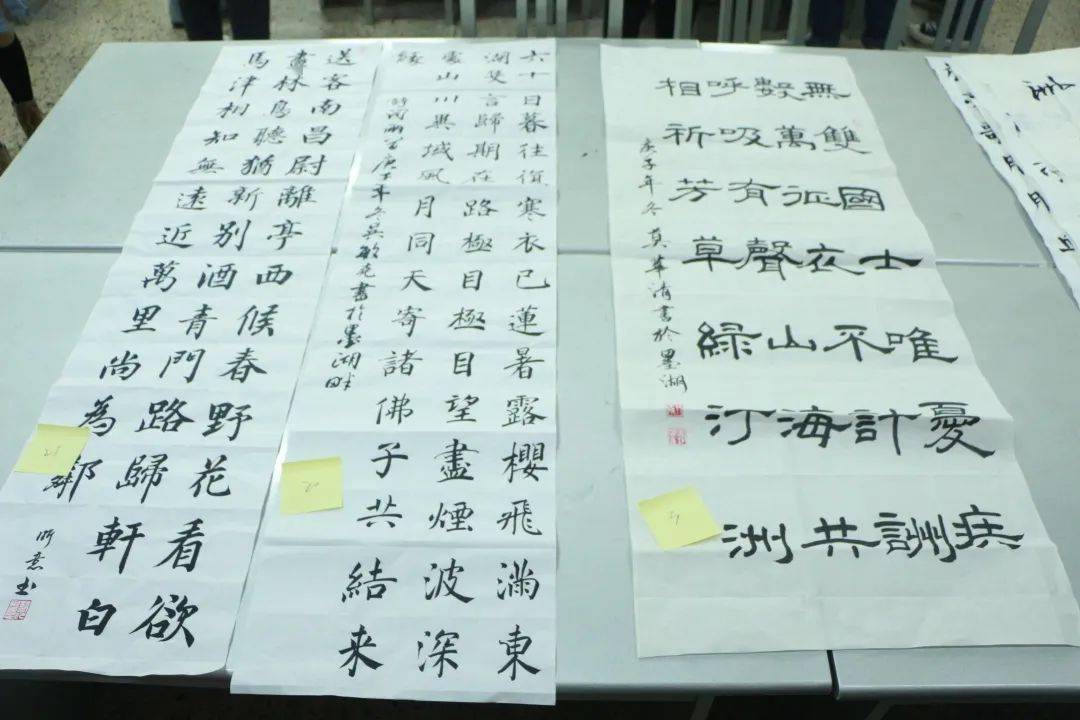 送客南昌尉離亭西候春野花看欲
盡林鳥聽猶新別酒青門路歸軒白
馬津相知無遠近萬里尚為鄰
書
六十日暮往復寒衣已蓮暑露櫻飛滿東
湖言歸期在路極目極目望盡煙波深
處山川異域風月同天寄諸佛子共結来
緣
庚子年冬吴敏書於墨湖畔
無雙國士唯憂疾
數萬征衣不計酬
呼吸有聲山海共
相祈芳草綠汀洲
庚子年冬莫華清書於墨湖